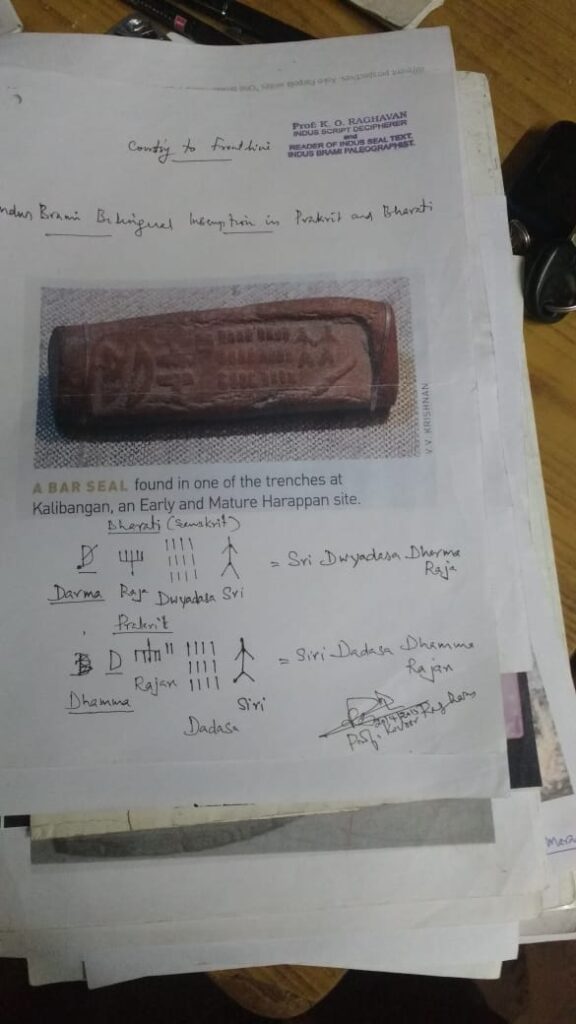 Prof: K. O. RAGHAVAN
INDUS SCRIPT DECIPHERER
and
READER OF INDUS SEAL TEXT.
INDUS BRAMI PALEOGRAPHIST.
to Frontline
ndus Brami Bilingual Inscription in Prakrit and Bharati
V.V. KRISHNAN
A BAR SEAL found in one of the trenches at
Kalibangan, an Early and Mature Harappan site.
Bharati (Sanskrit)
= Sri Dwyadasa Dharma
Raja
Darma Raja Dwyadasa Sri
Prakrit
= Siri Dadasa Dhamma
Rajan
Rajan
Dhamma
Siri
Dadasa
Prof.